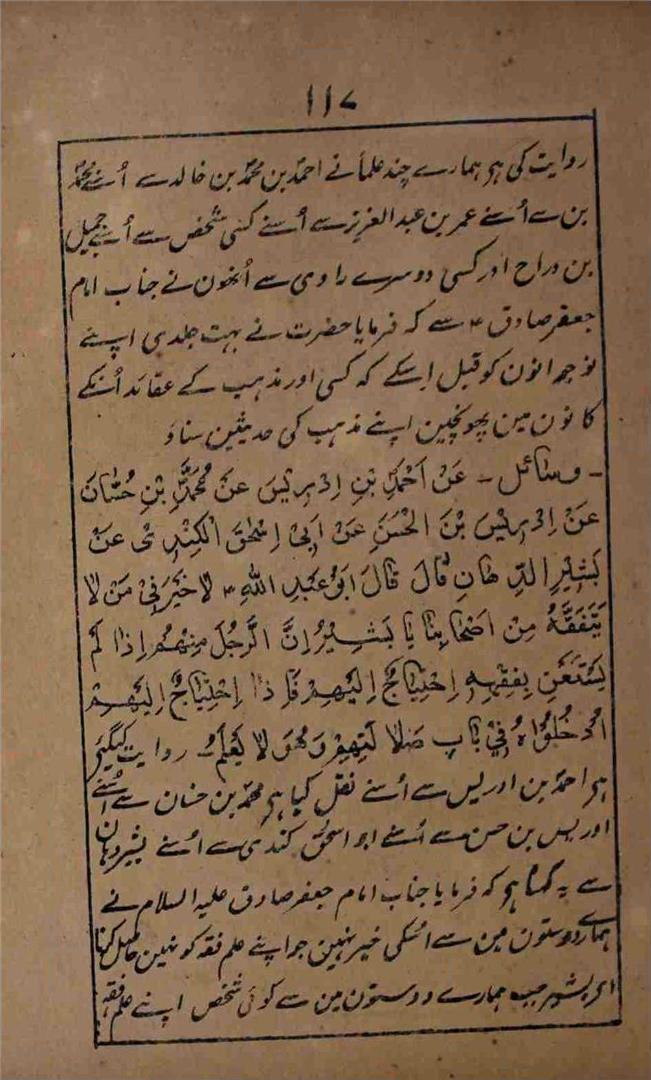 ۱۱۷
روایت کی ہو ہمارے چند علمأنے احمد بن محمد بن خالد سے اُسنے محمد
بن سے اُسنے عمر بن عبد العزیز سے اُسنے کسی شخص سے اُسنے جمیل
بن دراح اور کسی دوسرے راوی سے اُنھون نے جناب امام
جعفر صادق ؑ سے کہ فرمایا حضرت نے بہت جلدی اپنے
نوجوانون کو قبل اِسکے کہ کسی اور مذہب کے عقائد اُنکے
کانون مین پہونچین اپنے مذہب کی حدیثین سناؤ
- وسائل - عَنْ اَحْمَدَ بْنِ اِدْرِیْسَ عَنْ مُحَمَّدِ بْنِ حُسَّانَ
عَنْ اِدْرِیْسَ بْنَ الْحَسَنِ عَنْ اَبِیْ اِسْحٰقَ الْکِنْدِیْ عَنْ
بَشِیْرِ الدِّهَانِ قَالَ قَالَ اَبُوْ عَبْدِ اللّٰهِ ؑ لَا خَیْرَ فِیْ مَنْ لَا
یَتَفَقَّهُ مِنْ اَصْحَابِنَا یَا بَشِیْرُ اِنَّ الرَّجُلَ مِنْهُمْ اِذَا لَمْ
یَسْتَغْنِ بِفِقْهِهِ اِحْتِیَاجٌ اِلَیْهِمْ فَاِذَا اِحْتِیَاجٌ اِلَیْهِمْ
اَدْخَلُوْاهُ فِیْ بَابِ ضَلَالَتِهِمْ وَهُوَ لَا یَعْلَمُ روایت کیگئی
ہو احمد بن ادریس سے اُسنے نقل کیا ہو محمد بن حسان سے اُسنے
ادریس بن حسن سے اُسنے ابو اسحٰق کندی سے اُسنے بشیر دہان
سے یہ کہتا ہو کہ فرمایا جناب امام جعفر صادق علیہ السلام نے
ہمارے دوستون مین سے اُسکی خیر نہین جو اپنے علم فقہ کو نہین حاصل کرتا
اے بشیر جب ہمارے دوستون مین سے کوئی شخص اپنے علم فقہ